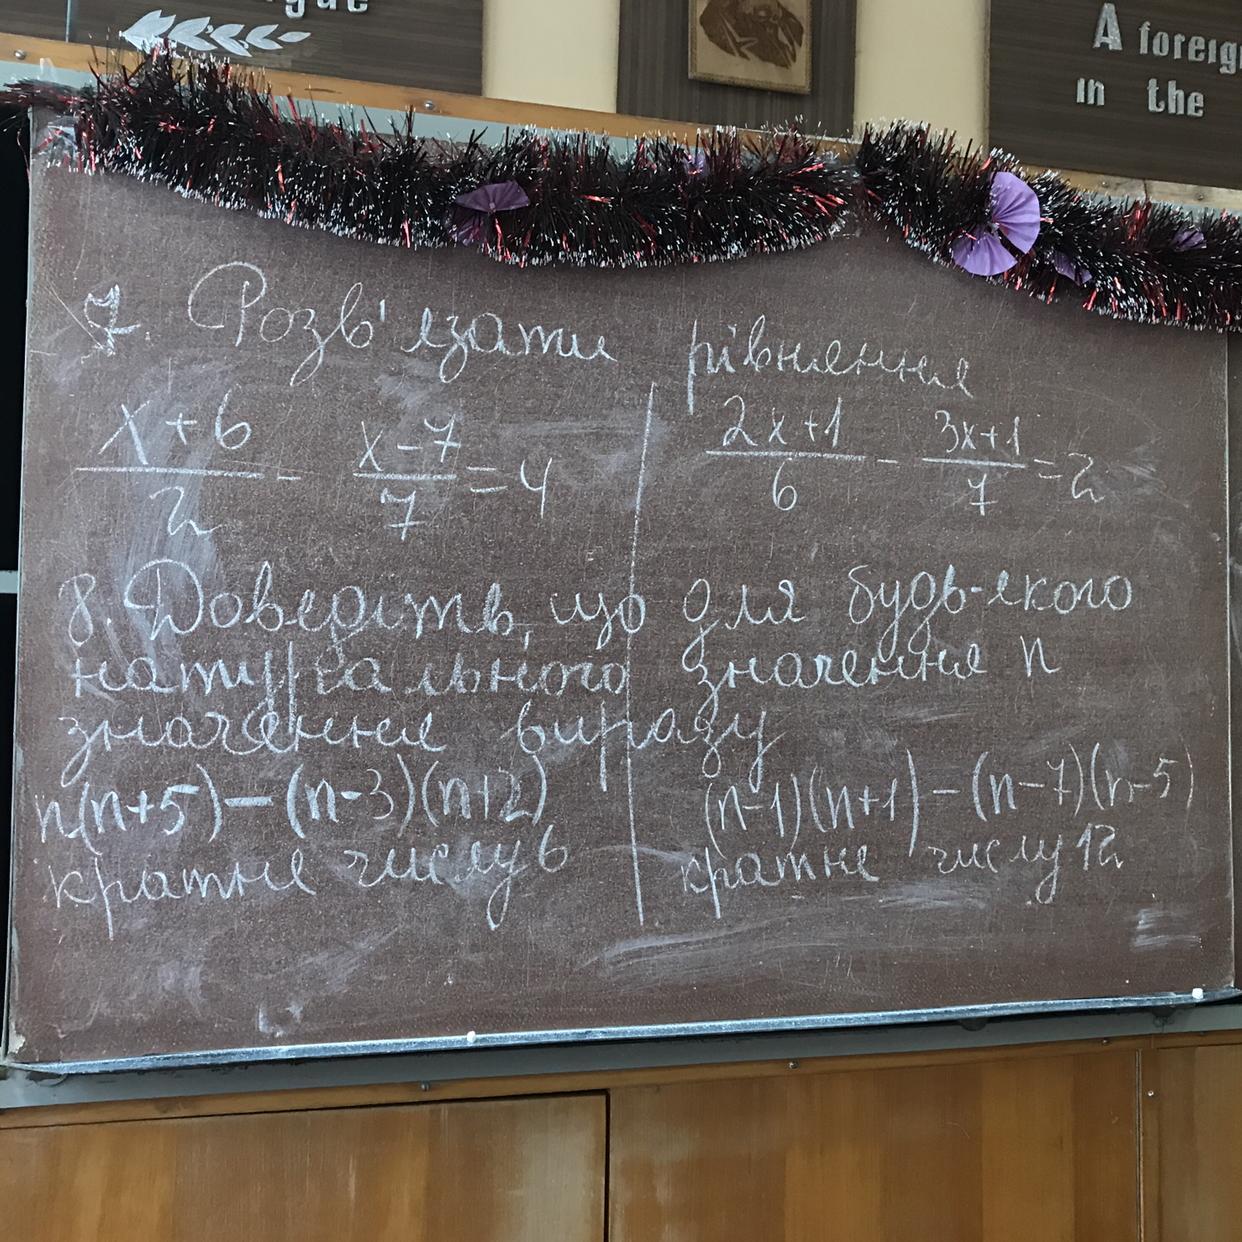 gue
A foreig
in the
7. Розв'язати рівняння
x+6/2 - x-7/7 = 4
2x+1/6 - 3x+1/7 = 2
8. Доведіть, що для будь-якого
натурального значення n
значення виразу
n(n+5)-(n-3)(n+2)
кратне числу 6
(n-1)(n+1)-(n-7)(n-5)
кратне числу 12